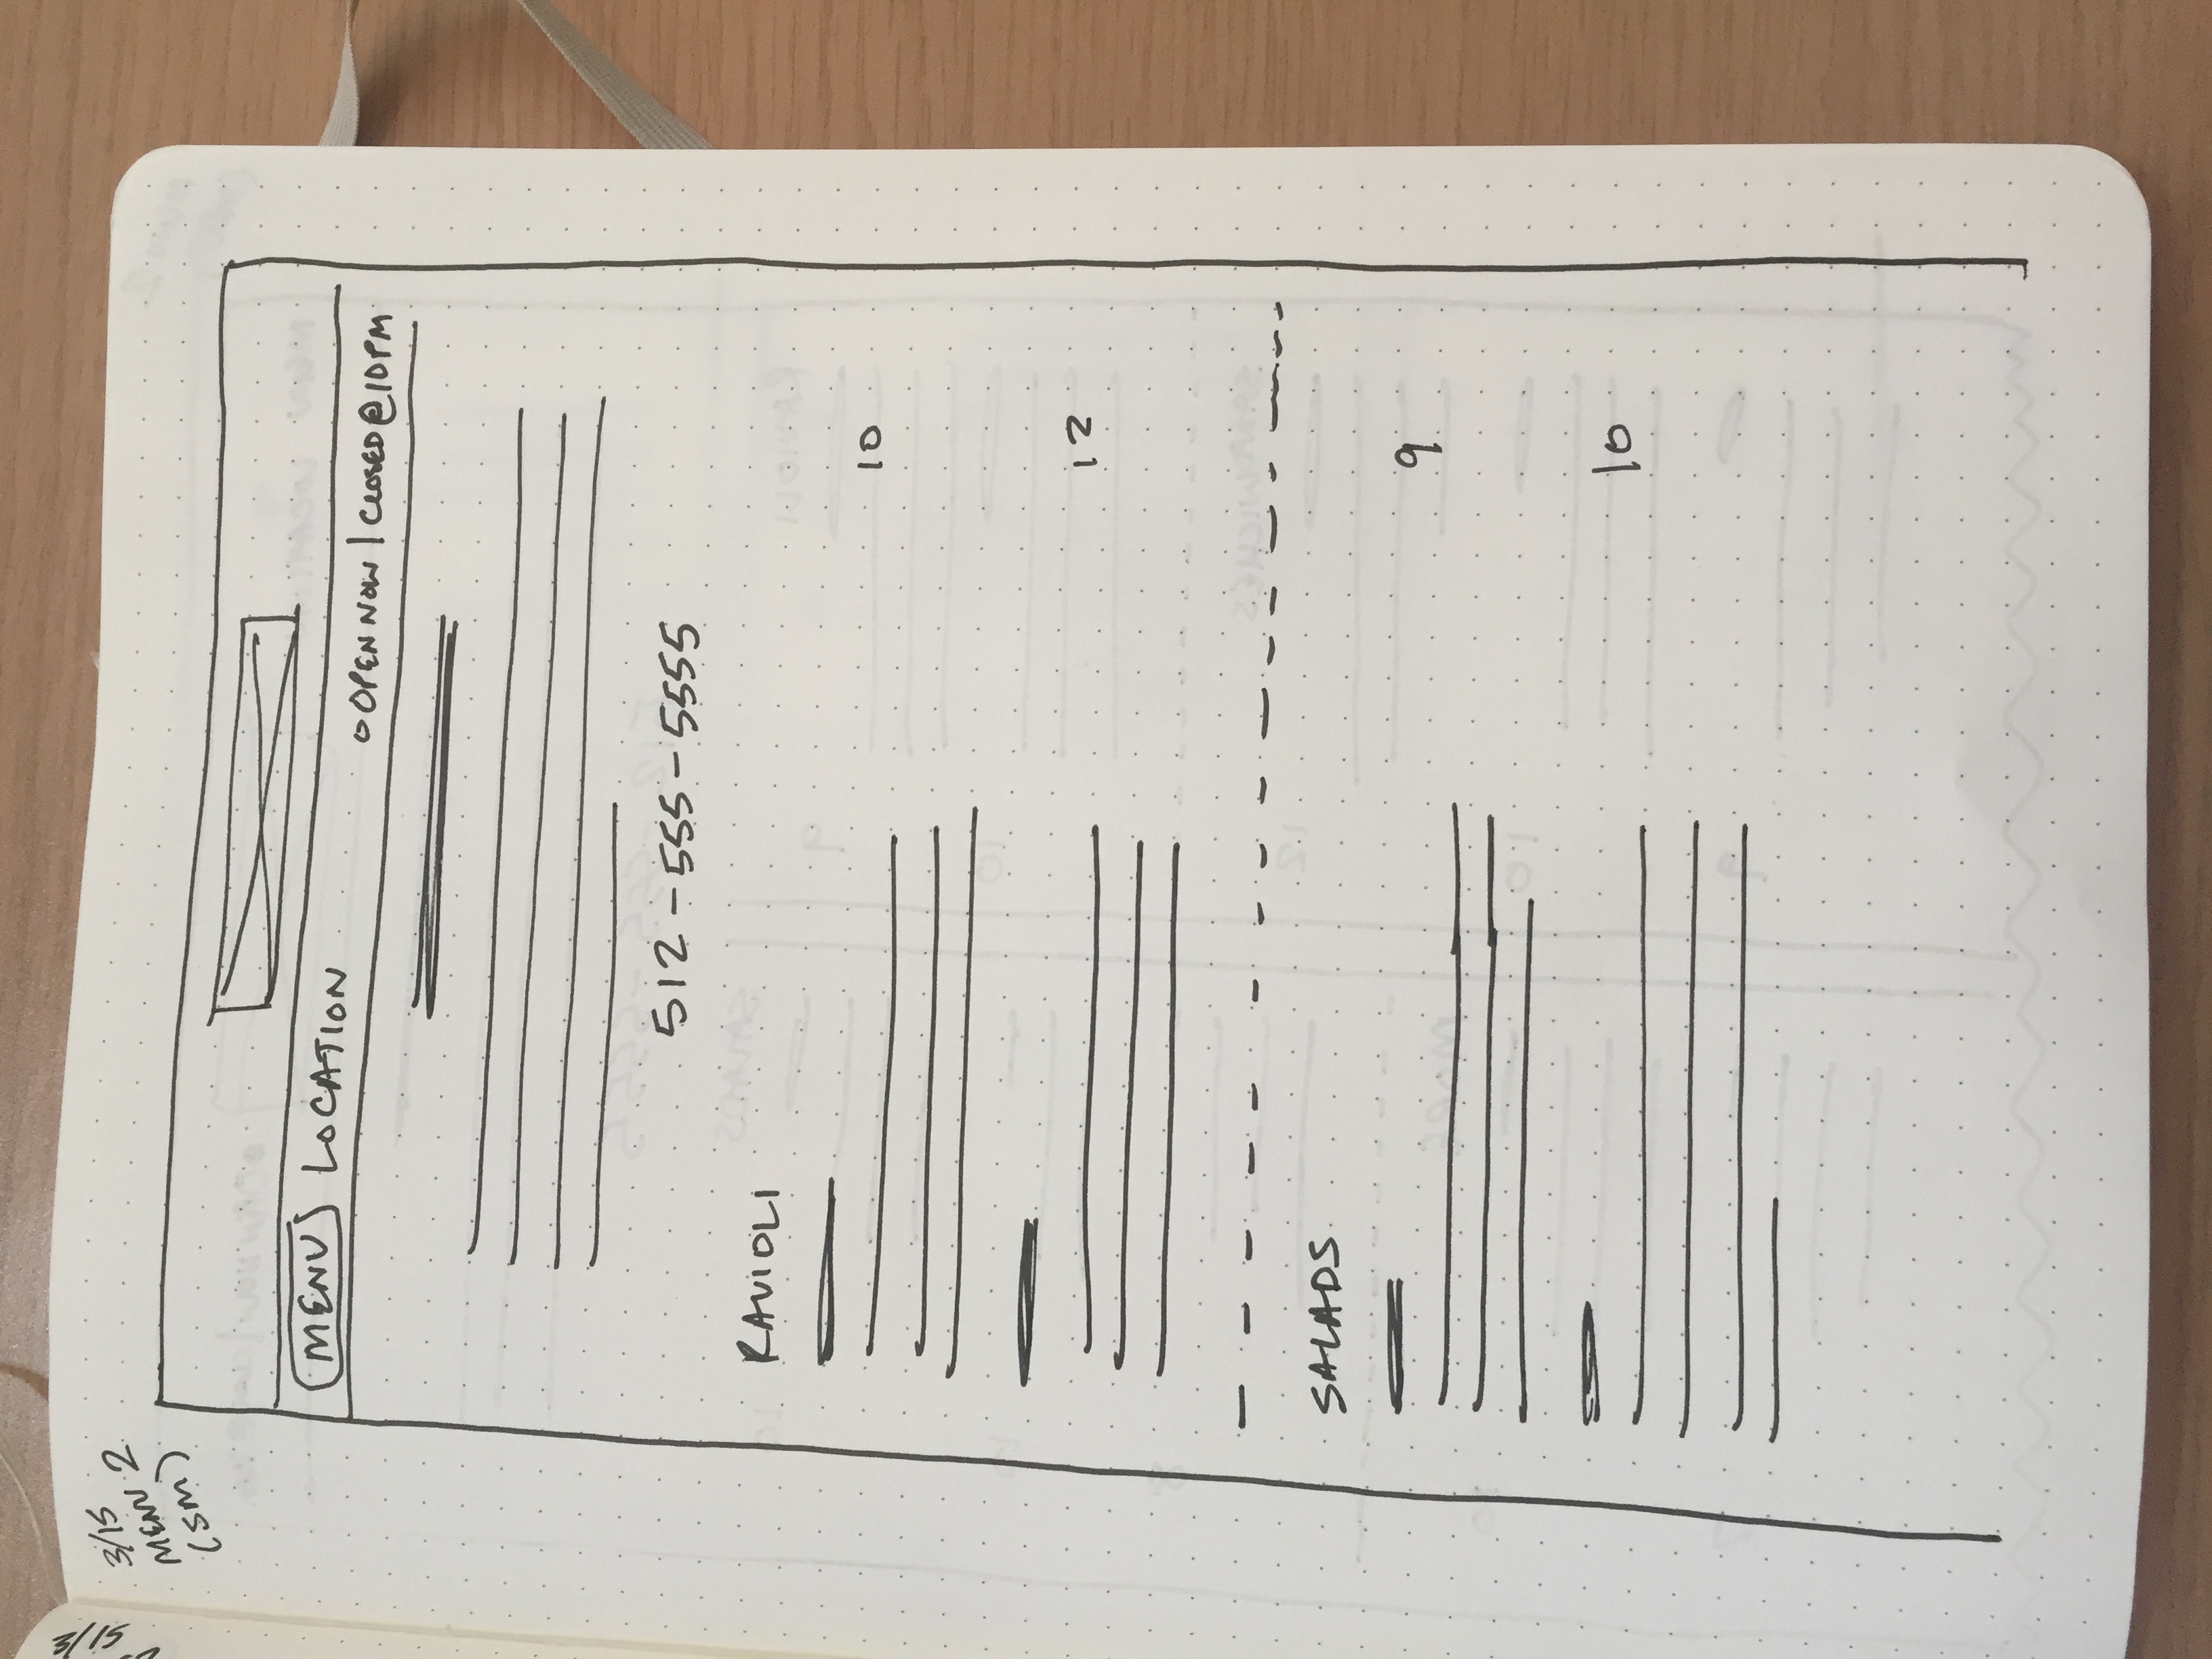 3/15
3/15
MENU 2
(SM)
MENU LOCATION
OPEN NOW | CLOSED @ 10PM
512-555-5555
RAVIOLI
10
12
SALADS
9
10